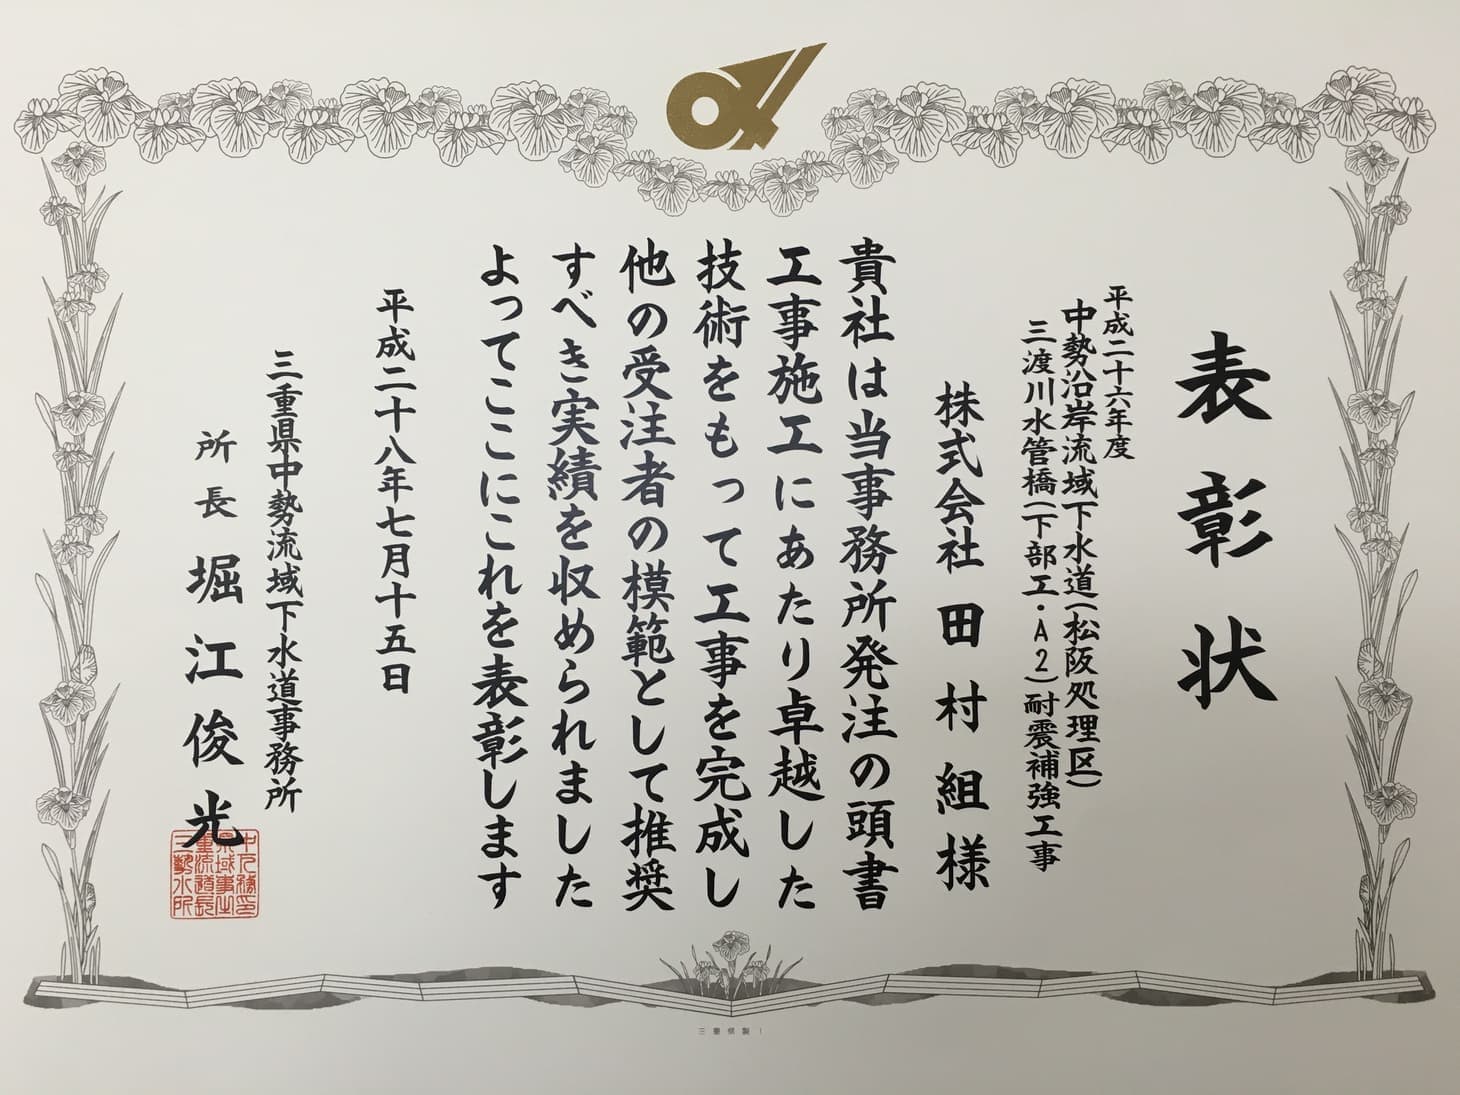 表彰状
平成二十六年度
中勢沿岸流域下水道(松阪処理区)
三渡川水管橋(下部工・A2)耐震補強工事
株式会社 田村組様
貴社は当事務所発注の頭書
工事施工にあたり卓越した
技術をもって工事を完成し
他の受注者の模範として推奨
すべき実績を収められました
よってここにこれを表彰します
平成二十八年七月十五日
三重県中勢流域下水道事務所
所長 堀江俊光